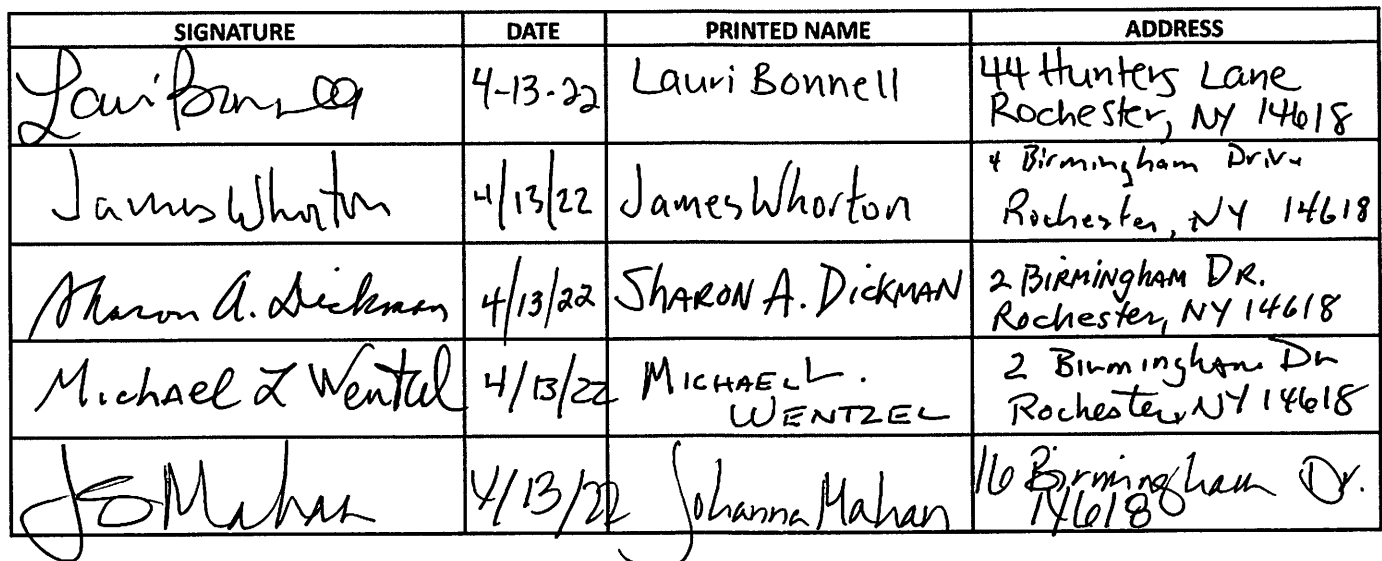 SIGNATURE DATE PRINTED NAME ADDRESS
Lauri Bonnell 4-13-22 Lauri Bonnell 44 Hunters Lane
Rochester, NY 14618
James Whorton 4/13/22 James Whorton 4 Birmingham Drive
Rochester, NY 14618
Sharon A. Dickman 4/13/22 SHARON A. DICKMAN 2 BIRMINGHAM DR.
Rochester, NY 14618
Michael L Wentzel 4/13/22 MICHAEL L. 2 Birmingham Dr
WENTZEL Rochester, NY 14618
Jo Mahan 4/13/22 Johanna Mahan 16 Birmingham Dr.
14618